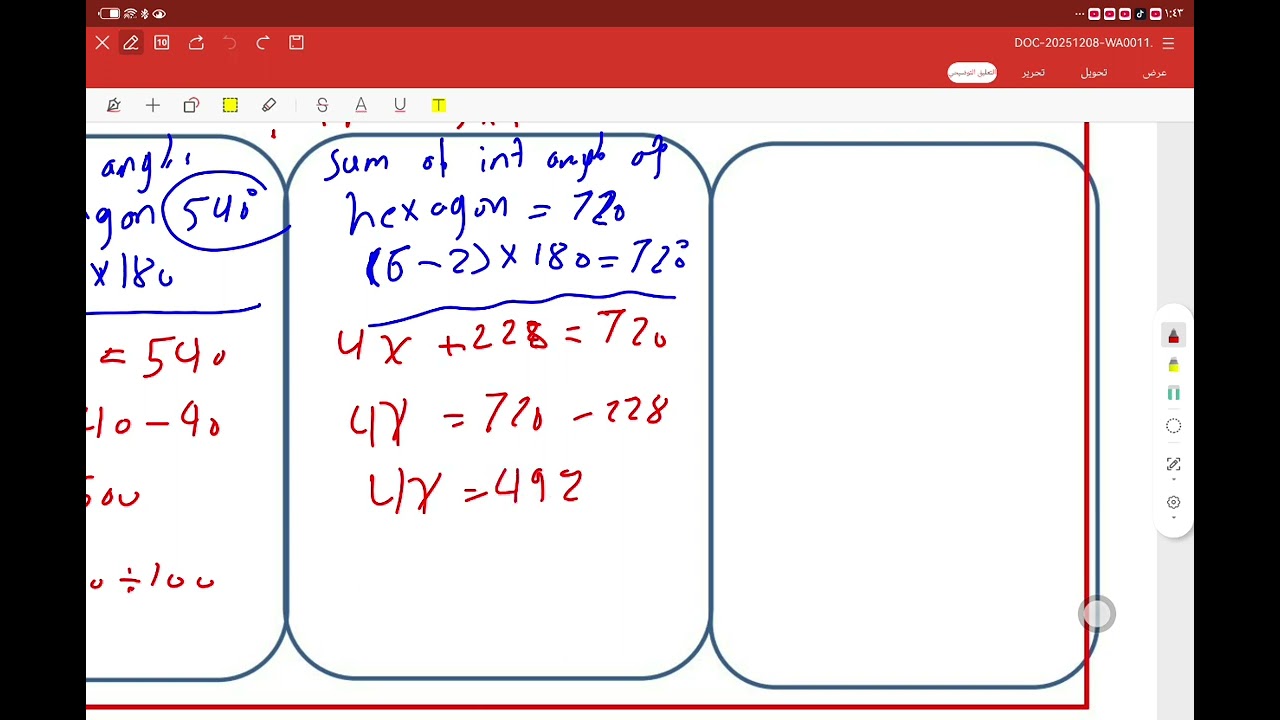 ١:٤٣
DOC-20251208-WA0011.
10
عرض تحويل تحرير التعليق التوضيحي
S A U T
angl.
gon 540°
× 180
= 540
40 - 40
500
0 ÷ 100
sum of int angle of
hexagon = 720
(6 - 2) × 180 = 720°
4x + 228 = 720
4x = 720 - 228
4x = 492